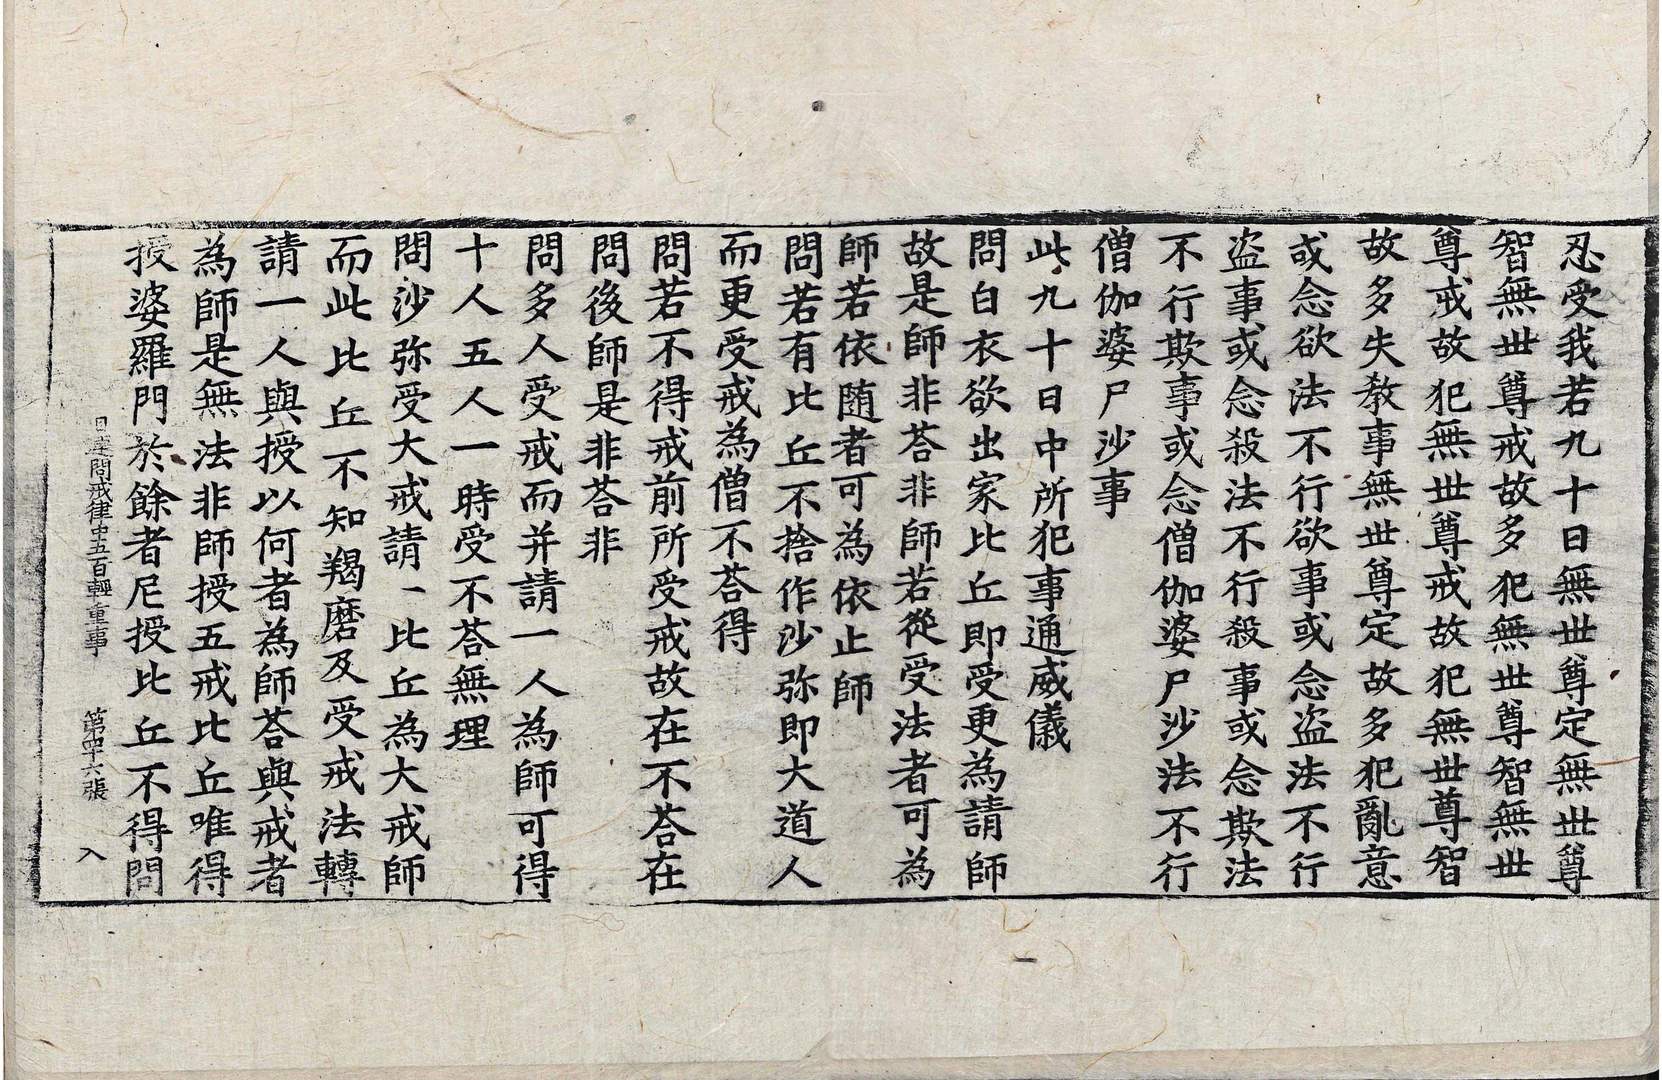 忍受我若九十日無世尊定無世尊
智無世尊戒故多犯無世尊智無世
尊戒故犯無世尊戒故犯無世尊智
故多失教事無世尊定故多犯亂意
或念欲法不行欲事或念盜法不行
盜事或念殺法不行殺事或念欺法
不行欺事或念僧伽婆尸沙法不行
僧伽婆尸沙事
此九十日中所犯事通威儀
問白衣欲出家比丘即受更為請師
故是師非荅非師若從受法者可為
師若依随者可為依止師
問若有比丘不捨作沙弥即大道人
而更受戒為僧不荅得
問若不得戒前所受戒故在不荅在
問後師是非荅非
問多人受戒而并請一人為師可得
十人五人一時受不荅無理
問沙弥受大戒請一比丘為大戒師
而此比丘不知羯磨及受戒法轉
請一人與授以何者為師荅與戒者
為師是無法非師授五戒比丘唯得
授婆羅門於餘者尼授比丘不得問
目連問戒律中五百輕重事 第四十六張 入